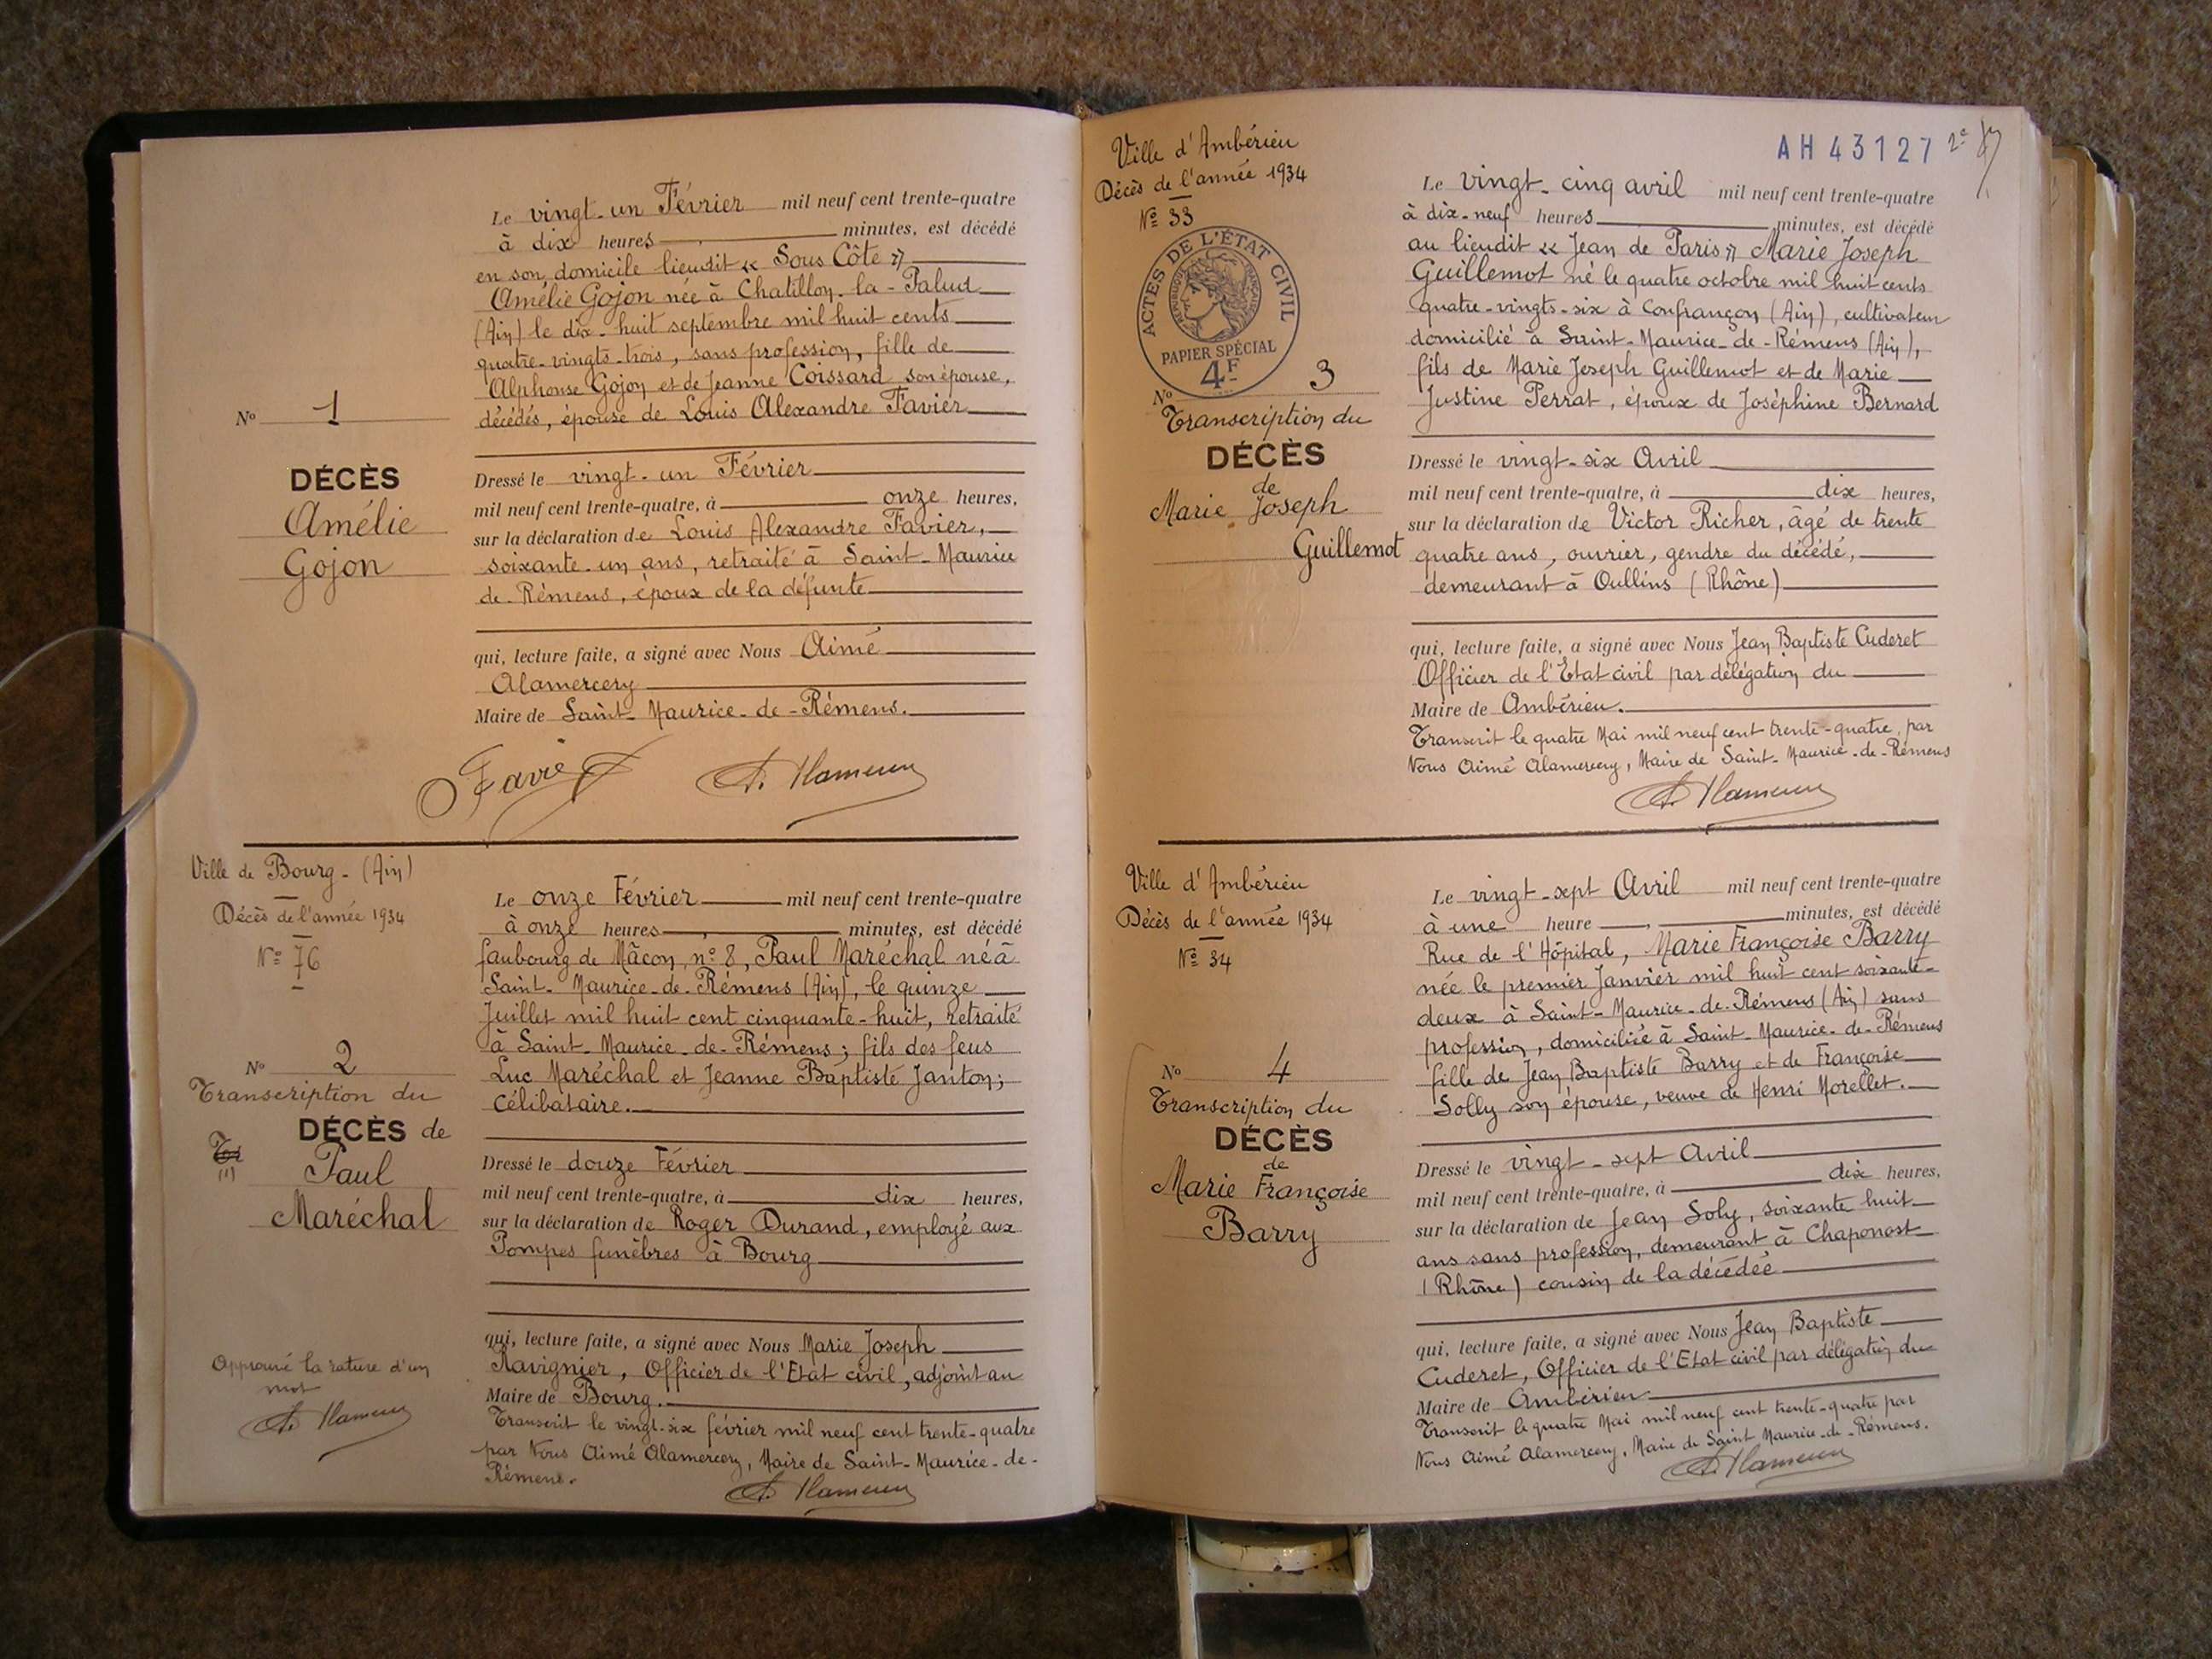 Le vingt-un Février mil neuf cent trente-quatre
à dix heures minutes, est décédé
en son domicile lieudit « Sous Côte »
Amélie Gojon née à Chatillon-la-Palud
(Ain) le dix-huit septembre mil huit cents
quatre-vingts-trois, sans profession, fille de
Alphonse Gojon et de Jeanne Coissard son épouse,
décédés, épouse de Louis Alexandre Favier
N° 1
DÉCÈS
Amélie
Gojon
Dressé le vingt-un Février
mil neuf cent trente-quatre, à onze heures,
sur la déclaration de Louis Alexandre Favier,
soixante-un ans, retraité à Saint-Maurice
de-Rémens, époux de la défunte
qui, lecture faite, a signé avec Nous Aimé
Alamercery
Maire de Saint-Maurice-de-Rémens.
Favier
Ville de Bourg-(Ain)
Décès de l'année 1934
N° 76
N° 2
Transcription du
DÉCÈS de
(1)
Paul
Maréchal
Approuvé la rature d'un
mot
Le onze Février mil neuf cent trente-quatre
à onze heures minutes, est décédé
faubourg de Mâcon, n° 8, Paul Maréchal né à
Saint-Maurice-de-Rémens (Ain), le quinze
Juillet mil huit cent cinquante-huit, retraité
à Saint-Maurice-de-Rémens; fils des feus
Luc Maréchal et Jeanne Baptiste Janton;
célibataire.
Dressé le douze Février
mil neuf cent trente-quatre, à dix heures,
sur la déclaration de Roger Durand, employé aux
Pompes funèbres à Bourg
qui, lecture faite, a signé avec Nous Marie Joseph
Ravignier, Officier de l'Etat civil, adjoint au
Maire de Bourg.
Transcrit le vingt-six février mil neuf cent trente-quatre
par Nous Aimé Alamercery, Maire de Saint-Maurice-de-
Rémens.
Ville d'Ambérieu
Décès de l'année 1934
N° 33
ACTES DE L'ÉTAT CIVIL
RÉPUBLIQUE FRANÇAISE
PAPIER SPÉCIAL
4F
N° 3
Transcription du
DÉCÈS
de
Marie Joseph
Guillemot
AH 43127
Le vingt-cinq avril mil neuf cent trente-quatre
à dix-neuf heures minutes, est décédé
au lieudit « Jean de Paris » Marie Joseph
Guillemot né le quatre octobre mil huit cents
quatre-vingts-six à Confrançon (Ain), cultivateur
domicilié à Saint-Maurice-de-Rémens (Ain),
fils de Marie Joseph Guillemot et de Marie
Justine Perrat, époux de Joséphine Bernard
Dressé le vingt-six Avril
mil neuf cent trente-quatre, à dix heures,
sur la déclaration de Victor Richer, âgé de trente
quatre ans, ouvrier, gendre du décédé,
demeurant à Oullins (Rhône)
qui, lecture faite, a signé avec Nous Jean Baptiste Cuderet
Officier de l'Etat civil par délégation du
Maire de Ambérieu.
Transcrit le quatre Mai mil neuf cent trente-quatre, par
Nous Aimé Alamercery, Maire de Saint-Maurice-de-Rémens
Ville d'Ambérieu
Décès de l'année 1934
N° 34
N° 4
Transcription du
DÉCÈS
de
Marie Françoise
Barry
Le vingt-sept Avril mil neuf cent trente-quatre
à une heure minutes, est décédé
Rue de l'Hôpital, Marie Françoise Barry
née le premier Janvier mil huit cent soixante-
deux à Saint-Maurice-de-Rémens (Ain) sans
profession, domiciliée à Saint-Maurice-de-Rémens
fille de Jean Baptiste Barry et de Françoise
Solly son épouse, veuve de Henri Morellet.
Dressé le vingt-sept Avril
mil neuf cent trente-quatre, à dix heures,
sur la déclaration de Jean Soly, soixante huit
ans sans profession, demeurant à Chaponost
(Rhône) cousin de la décédée
qui, lecture faite, a signé avec Nous Jean Baptiste
Cuderet, Officier de l'Etat civil par délégation du
Maire de Ambérieu
Transcrit le quatre Mai mil neuf cent trente-quatre par
Nous Aimé Alamercery, Maire de Saint Maurice-de-Rémens.